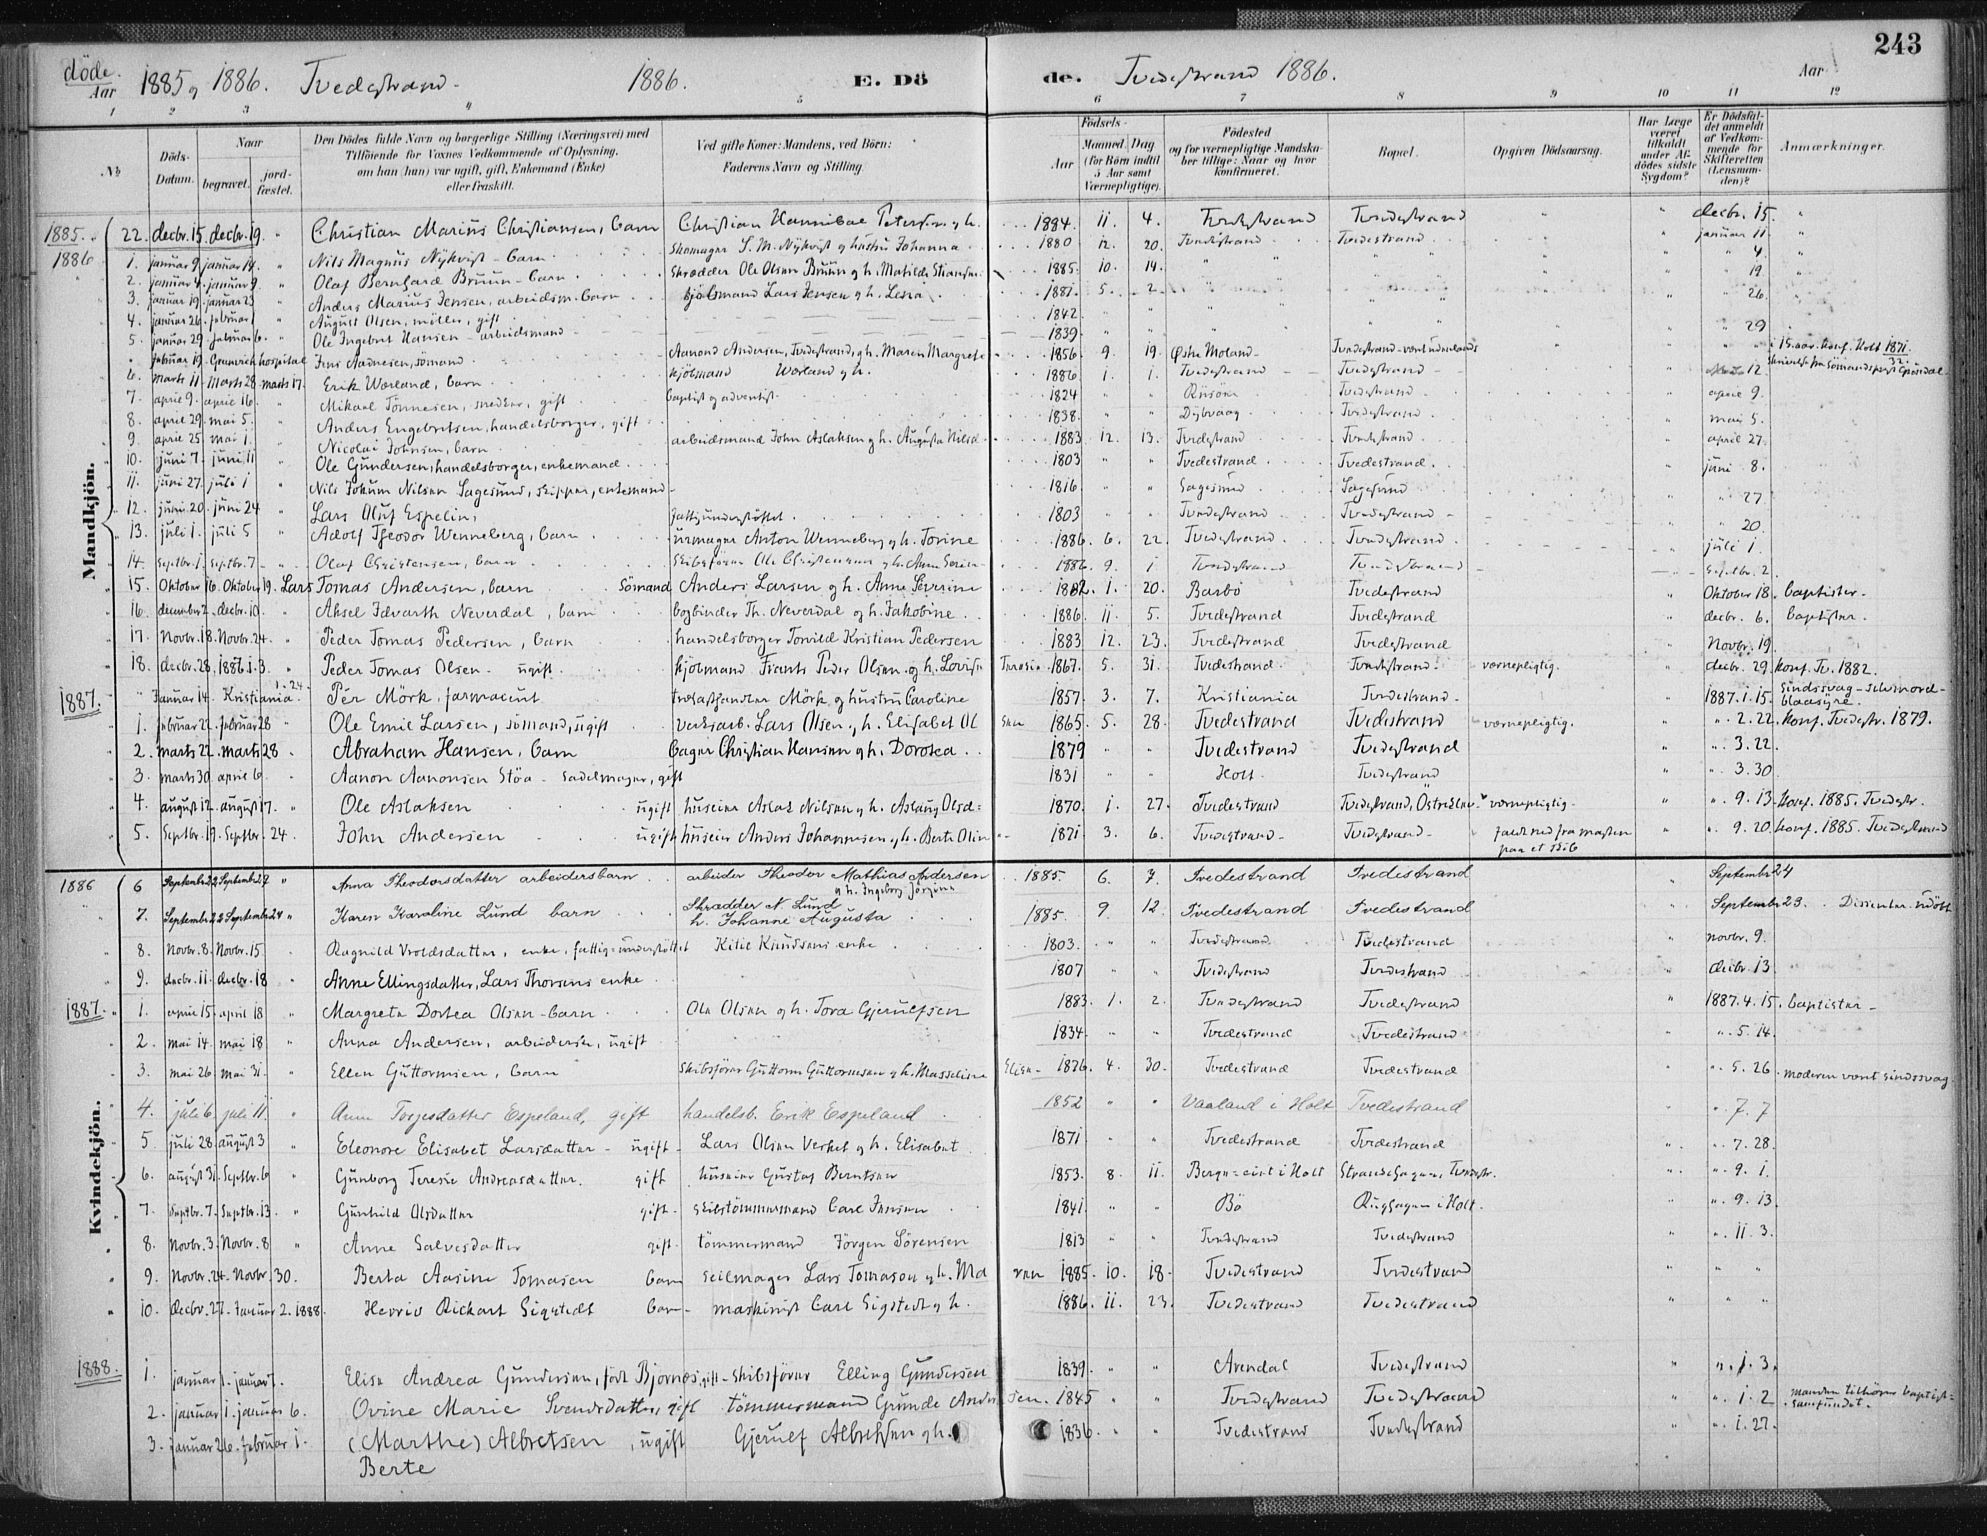 243
döde. Aar 1885 og 1886. Tvedestrand. 1886. E. Dö de. Tvedestrand 1886. Aar
1 2 3 4 5 6 7 8 9 10 11 12
№ Döds-Datum. Naar begravet. jord-fæstet. Den Dödes fulde Navn og borgerlige Stilling (Næringsvei) med Tilföiende for Voxnes Vedkommende af Oplysning, om han (hun) var ugift, gift, Enkemand (Enke) eller fraskilt. Ved gifte Koner: Mandens, ved Börn: Faderens Navn og Stilling. Födsels- Aar Maaned. Dag (for Börn indtil 5 Aar samt Værnepligtige). Födested og for værnepligtige Mandskaber tillige: Naar og hvor konfirmeret. Bopæl. Opgiven Dödsaarsag. Har Læge været tilkaldt under Afdödes sidste Sygdom? Er Dödsfaldet anmeldt af Vedkommende for Skifteretten (Lensmanden)? Anmærkninger.
Mandkjön.
1885. 22. decbr. 15. decbr. 19. " Christian Marius Christiansen, barn Christian Hannibal Petersen og h. 1884. 11. 4. Tvedestrand Tvedestrand " " decbr. 15. "
1886 1. januar 9. januar 14. " Nils Magnus Nykvist - barn Skomager S. M. Nykvist og hustru Johanna 1880 12. 20. Tvedestrand Tvedestrand januar 11. "
2. januar 4. januar 9. " Olaf Bernhard Bruun - barn Skrædder Ole Olsen Bruun og h. Matilde 1885. 10. 14. " " " 4. "
3. januar 19. januar 23 " Anders Marius Jensen, arbeidsm. barn Lars Jensen og h. Lena 1881. 5. 2. " " 19. "
4. januar 26. februar 1 " August Olsen, möller, gift 1842 " " " " 26. "
5. januar 29. februar 6. " Ole Ingebret Hansen - arbeidsmand 1839 " " " " 29 "
" februar 19. hospital Jens Aadnesen, sömand Aanond Andersen, Tvedestrand, og h. Maren Margrete 1856 9. 19. Østre Moland Tvedestrand - i 15. aar. konf. Holt 1871.
6. marts 11. marts 28. marts 17. Erik Worland, barn kjöbmand Worland og h. 1886 1. 1. Tvedestrand Tvedestrand 12
7. april 9. april 16. " Mikael Tönnesen, snedker, gift baptist og adventist 1824 " " Riisöen Tvedestrand april 9.
8. april 29. mai 5. " Anders Engebretsen, handelsborger, gift 1838. " " Dybvaag Tvedestrand mai 5.
9. april 25. mai 1. " Nicolai Johnsen, barn arbeidsmand John Aslaksen og h. Augusta Nilsd. 1883. 12. 13. Tvedestrand Tvedestrand april 27.
10. juni 7. juni 11 " Ole Gundersen, handelsborger, enkemand 1803 " " Tvedestrand Tvedestrand juni 8.
11. juni 27. juli 1 " Nils Jokum Nilsen Sagesund, skipper, enkemand 1816 " " Sagesund Sagesund " 27.
12. juni 20. juni 24 " Lars Oluf Espelin, fattigunderstöttet 1803 " " Tvedestrand Tvedestrand " 20.
13. juli 1. juli 5 " Adolf Theodor Wenneberg, barn urmager Anton Wenneberg og h. Torine 1886. 6. 22. Tvedestrand Tvedestrand juli 1
14. septbr. 1. septbr. 7 " Olaf Christensen, barn Skibsförer Ole Christensen og h. Anna 1886. 9. 1 Tvedestrand Tvedestrand Septbr. 2.
15. Oktober 16. Oktober 19. Lars Tomas Andersen, barn Sömand Anders Larsen og h. Anne Severine 1882. 1. 20. Barbö Tvedestrand Oktober 18. baptister.
16. december 2. decbr. 10. " Aksel Edvarth Neverdal, barn bogbinder Th. Neverdal og h. Jakobine 1886. 11. 5. Tvedestrand Tvedestrand decbr. 6. baptister.
17. Novbr. 18. Novbr. 24. " Peder Tomas Pedersen, barn handelsborger Torvild Kristian Pedersen 1883 12. 23. Tvedestrand Tvedestrand Novbr. 19
18. decbr. 28. 1886. 1. 3. " Peder Tomas Olsen - ugift kjöbmand Frants Peder Olsen og h. Lovise 1867. 5. 31. Tvedestrand. Tvedestrand. værnepligtig. decbr. 29. konf. Tv. 1882.
1887. " Januar 14. Kristiania. 1. 24. Pér Mörk, farmaceut Mörk og hustru Caroline 1857. 3. 7. Kristiania Tvedestrand 1887. 1. 15. Sindssvag - selvmord - blaasyre.
1. februar 22. februar 28 " Ole Emil Larsen, sömand, ugift verksarb. Lars Olsen og h. Elisabet Ol sen 1865. 5. 28. Tvedestrand Tvedestrand værnepligtig. " . 2. 22. konf. Tvedestr. 1879.
2. marts 22. marts 28 " Abraham Hansen, barn bager Christian Hansen og h. Dorotea 1879 " " Tvedestrand Tvedestrand " . 3. 22.
3. marts 30. april 6. " Aanon Aanonsen Stöa - sadelmager, gift 1831 " " Holt. Tvedestrand " . 3. 30
4. august 12. august 17. " Ole Aslaksen ugift huseier Aslak Nilsen og h. Aslaug Olsd. 1870. 1. 27. Tvedestrand Tvedestrand, værnepligtig. " . 9. 13. konf. 1885. Tvedestr.
5. Septbr. 19. Septbr. 24. John Andersen ugift huseier Anders Johannesen og h. Berte Olin 1871 3. 6. Tvedestrand Tvedestrand faldt ned fra masten paa et skib " . 9. 20. konf. 1885. Tvedestrand
Kvindekjön.
1886 6 September 22 September 27 " Anna Theodorsdatter arbeidersbarn arbeider Theodor Mathias Andersen og h. Ingeborg Jörgine 1885. 6. 7. Tvedestrand Tvedestrand September 24
7. September 22 September 24 " Karen Karoline Lund barn Skrædder N. Lund h. Johanne Augusta 1885. 9 12. Tvedestrand Tvedestrand September 23. Dissenter. udöbt
8. Novbr. 8. Novbr. 15 Ragnild Vroldsdatter, enke, fattigunderstöttet Kitil Knudsens enke 1803. " " Tvedestrand Tvedestrand novbr. 9.
9. decbr. 11. decbr. 18 " Anne Ellingsdatter, Lars Thorsens enke 1807 " " Tvedestrand Tvedestrand decbr. 13.
1887. 1. april 15. april 18 " Margrete Dortea Olsen - barn Ole Olsen og h. Tora Gjerulfsen 1883. 1. 2. Tvedestrand Tvedestrand 1887. 4. 15. baptister
2. mai 14. mai 18 " Anna Andersen, arbeiderske, ugift 1834. " " Tvedestrand Tvedestrand " . 5. 14.
3. mai 26. mai 31. " Ellen Guttormsen, barn Skibsförer Guttorm Guttormsen og h. Masseline Elisa- 1876. 4. 30. Tvedestrand Tvedestrand " . 5. 26. moderen været sindssvag
4. juli 6. juli 11. " Anne Torjesdatter Espeland, gift handelsb. Erik Espeland 1852 " " Vaaland i Holt Tvedestrand " . 7. 7
5. juli 28. august 3 " Eleonore Elisabet Larsdatter - ugift - Lars Olsen Verket og h. Elisabet 1871 " " Tvedestrand Tvedestrand " . 7. 28.
6. august 31. Septbr. 6 " Gunborg Terese Andreasdatter. gift huseier Gustav Berntsen 1853. 8. 11. i Holt Strandegagen, Tvedestr. " . 9. 1.
7. Septbr. 7. Septbr. 13. " Gunhild Olsdatter gift. skibstömmermand Carl Jensen 1841 " " Bö i Holt. " . 9. 13.
8. Novbr. 3. Novbr. 8 " Anne Salvesdatter gift. tömmermand Jörgen Sörensen 1813 " " Tvedestrand Tvedestrand " . 11. 3.
9. Novbr. 24. Novbr. 30. Berta Aasine Tomasen barn Seilmager Lars Tomasen og h. Ma ren 1885. 10. 18. Tvedestrand Tvedestrand " " "
10. decbr. 27. Januar 2. 1888. Rickart Sigstedt barn - maskinist Carl Sigstedt og h. 1886. 11. 23. Tvedestrand Tvedestrand " " "
1888. 1. januar 1. januar 7. Elise Andrea Gundersen, födt Bjornes, gift - Skibsförer Elling Gundersen 1839. " " Arendal Tvedestrand " . 1. 3.
2. januar 1. januar 6. Ovine Marie Svendsdatter, gift tömmermand Grunde Ander sen. 1845 " " Tvedestrand Tvedestrand " . 1. 2 manden tilhörer baptist-samfundet.
3. Januar 26. februar 1. (Marthe) Albretsen, ugift Gjerulf Albretsen og h. 1836. " " Tvedestrand Tvedestrand " . 1. 27.
Berte